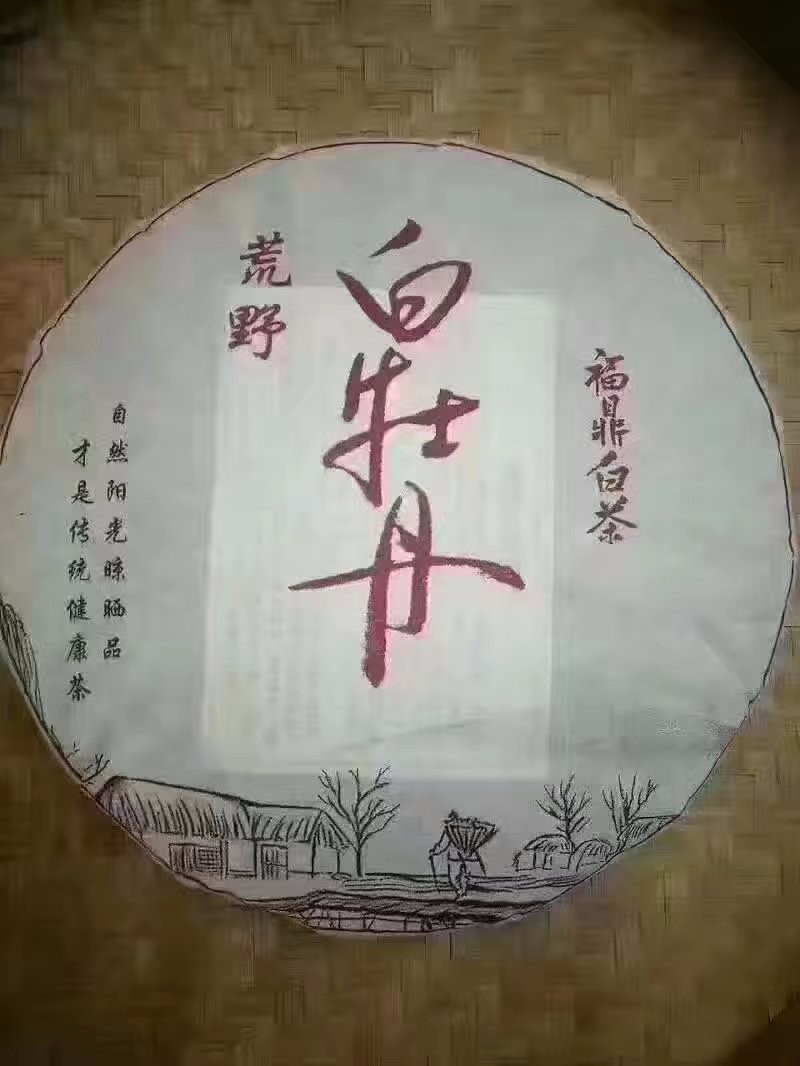 福鼎白茶
白牡丹
荒野
自然阳光晾晒品
才是传统健康茶